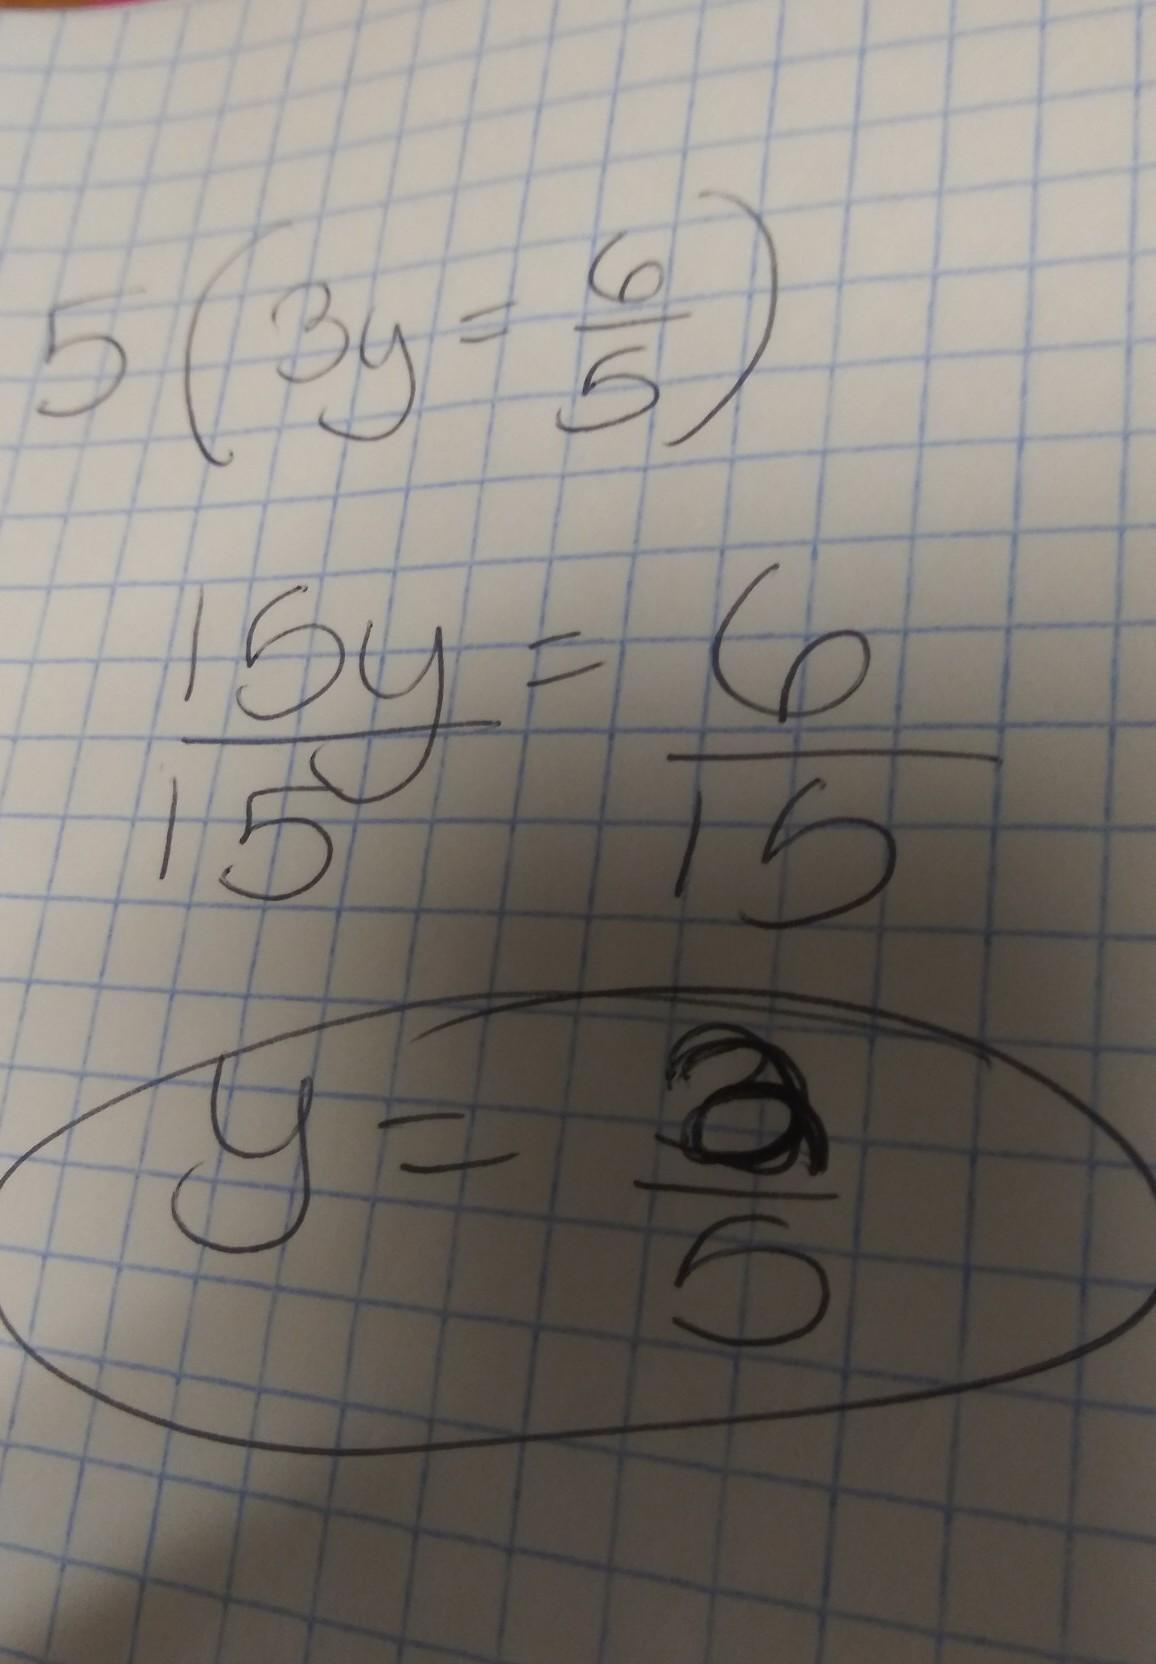 5(3y = 6/5)
15y/15 = 6/15
y = 2/5